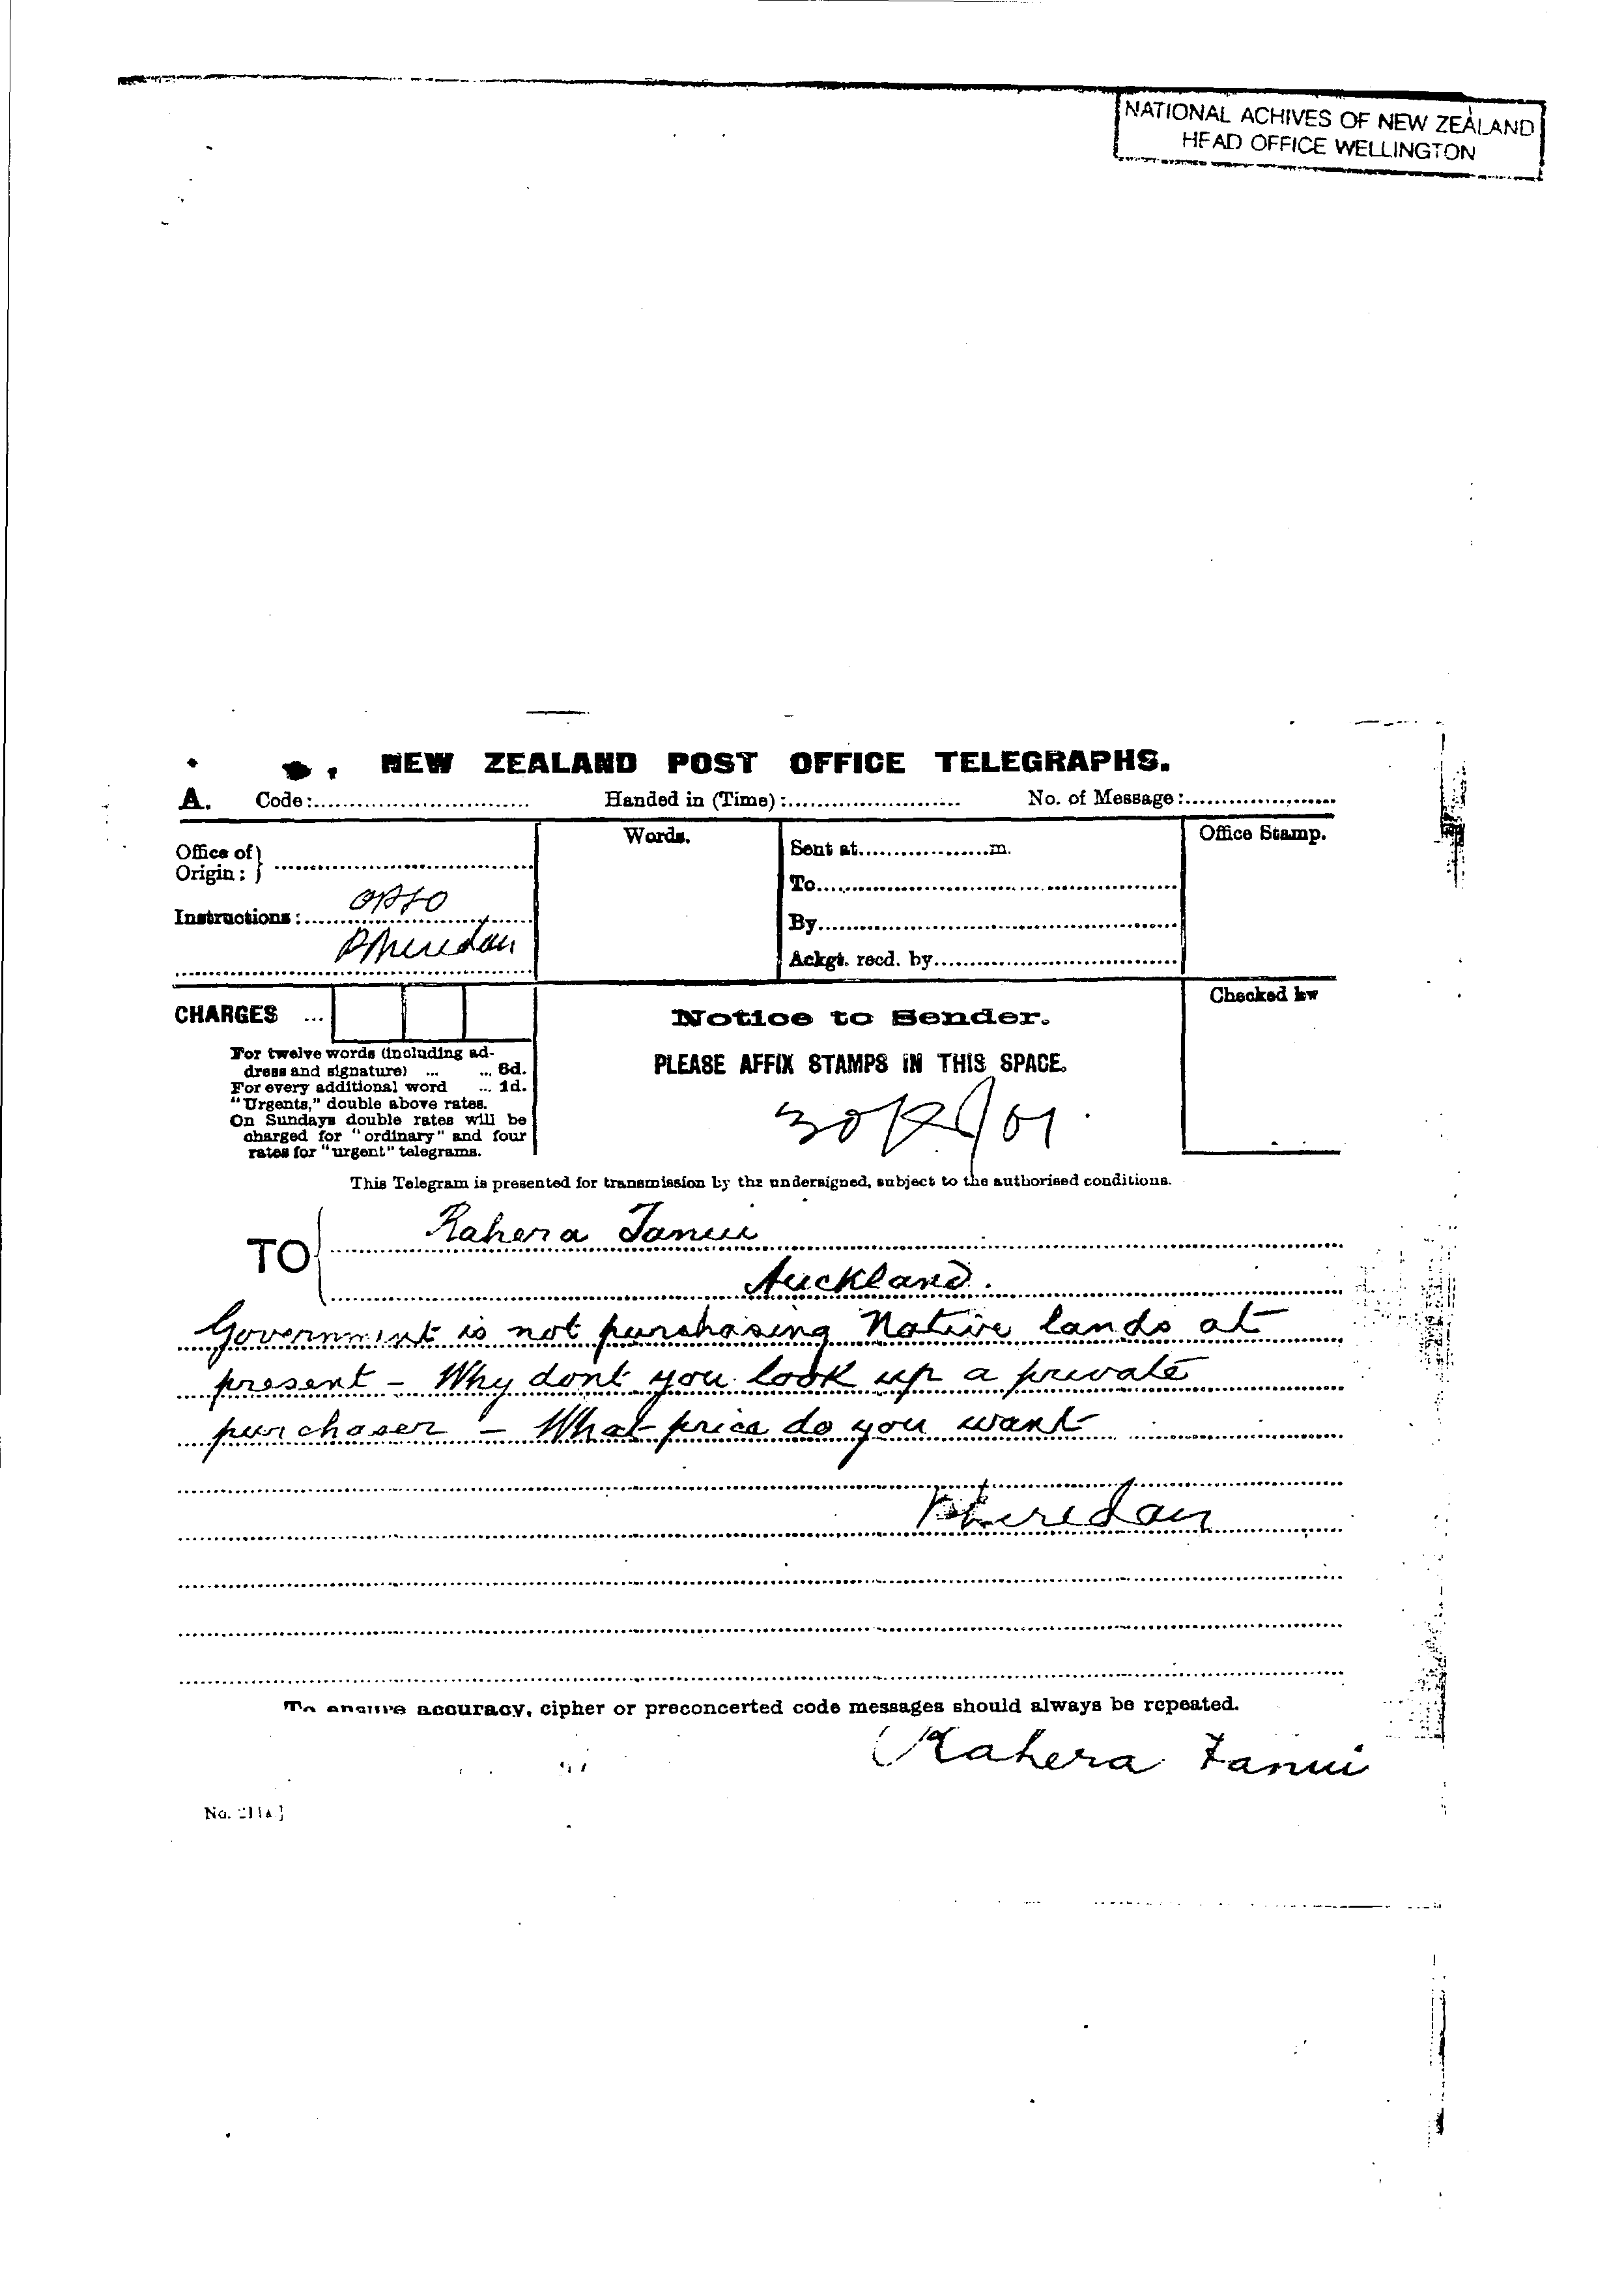 NATIONAL ACHIVES OF NEW ZEALAND
HEAD OFFICE WELLINGTON
NEW ZEALAND POST OFFICE TELEGRAPHS.
A. Code:
Handed in (Time):
No. of Message:
Office of
Origin:
Instructions:
PSheridan
Words.
Sent at m.
To
By
Ackgt. recd. by
Office Stamp.
CHARGES ...
For twelve words (including ad-
dress and signature) ... ... 6d.
For every additional word ... 1d.
"Urgents," double above rates.
On Sundays double rates will be
charged for "ordinary" and four
rates for "urgent" telegrams.
Notice to Sender.
PLEASE AFFIX STAMPS IN THIS SPACE.
Checked by
30/12/01.
This Telegram is presented for transmission by the undersigned, subject to the authorised conditions.
TO Rahera Tanui
Auckland.
Government is not purchasing Native lands at
present - Why dont you look up a private
purchaser - What price do you want
PSheridan
To ensure accuracy, cipher or preconcerted code messages should always be repeated.
Rahera Tanui